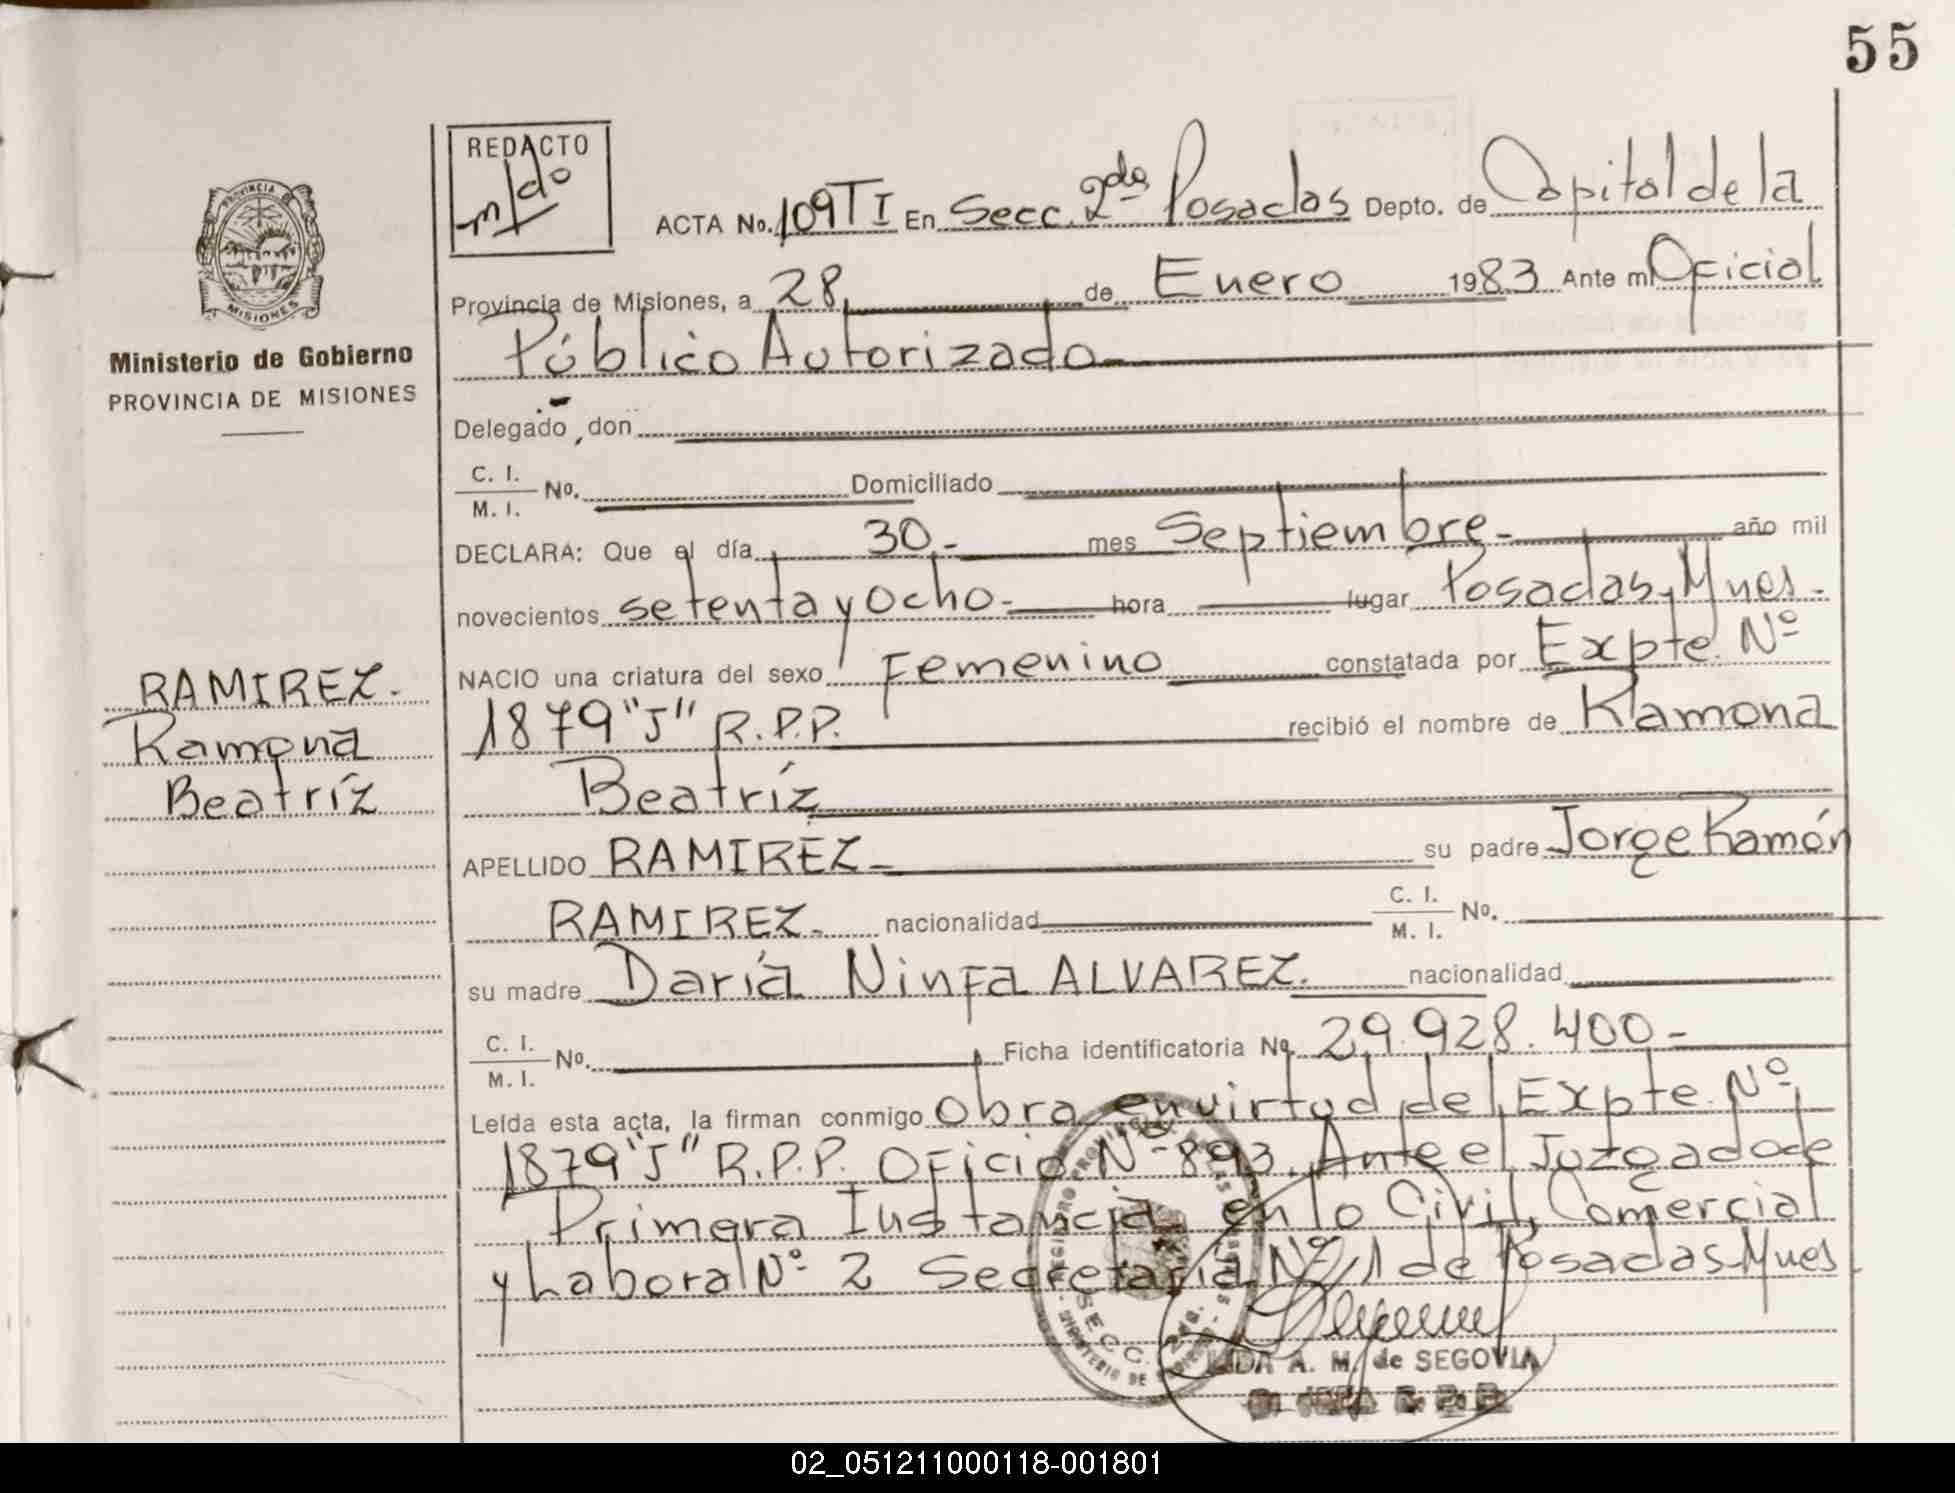 55
REDACTO
PROVINCIA
MISIONES
Ministerio de Gobierno
PROVINCIA DE MISIONES
ACTA No. 109 TI En Secc. 2da Posadas Depto. de Capital de la
Provincia de Misiones, a 28 de Enero 1983 Ante mi Oficial
Público Autorizado
Delegado, don
C. I.
M. I. No. Domiciliado
DECLARA: Que el día 30.- mes Septiembre- año mil
novecientos setenta y ocho- hora lugar Posadas, Mnes-
NACIO una criatura del sexo Femenino constatada por Expte. Nº
1879 "J" R.P.P. recibió el nombre de Ramona
Beatríz
APELLIDO RAMIREZ- su padre Jorge Ramón
RAMIREZ- nacionalidad C. I.
M. I. No.
su madre Daria Ninfa ALVAREZ. nacionalidad
C. I.
M. I. No. Ficha identificatoria No. 29.928.400-
Leída esta acta, la firman conmigo Obra en virtud del Expte. Nº
1879 "J" R.P.P. Oficio Nº 893. Ante el Juzgado de
Primera Instancia en lo Civil, Comercial
y Laboral Nº 2 Secretaria Nº 1 de Posadas Mnes
RAMIREZ.
Ramona
Beatríz
SECC.
A. M. de SEGOVIA
02_051211000118-001801